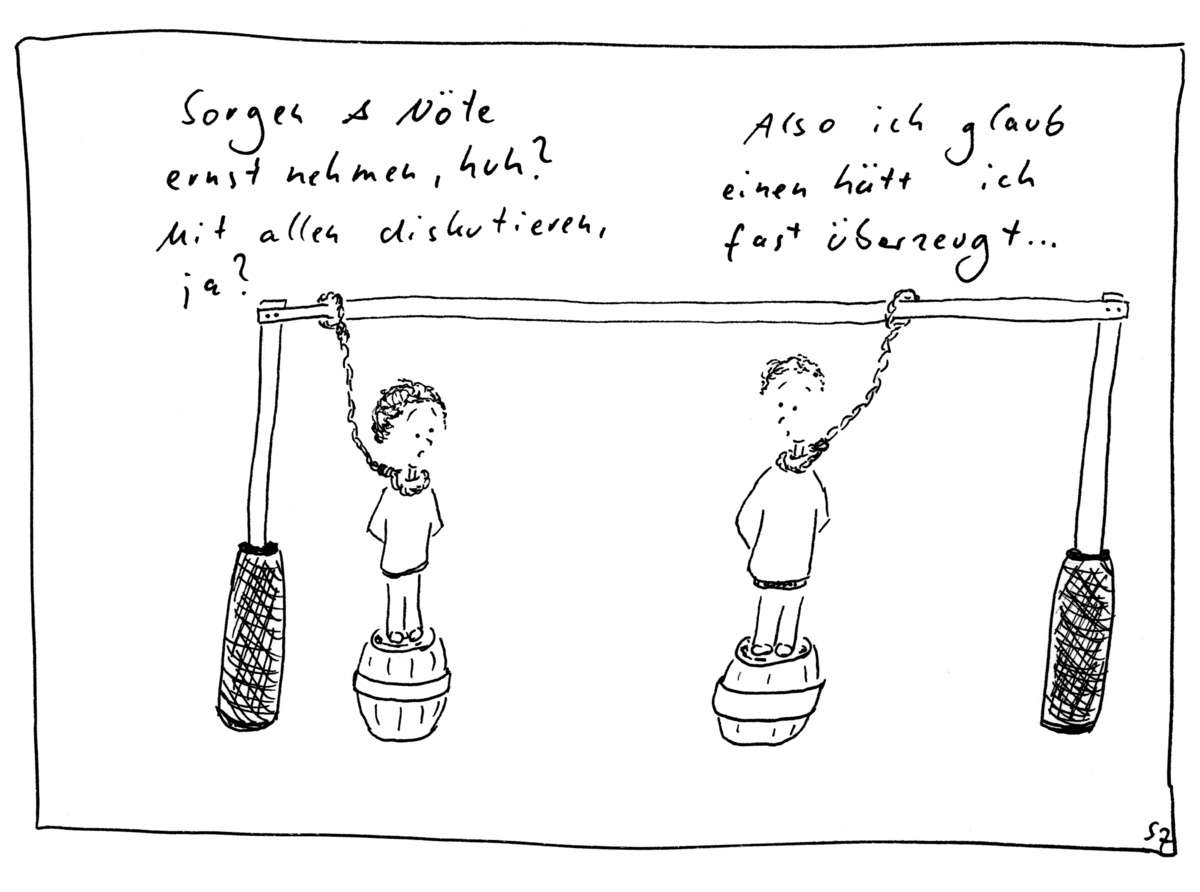 Sorgen & Nöte
ernst nehmen, huh?
Mit allen diskutieren,
ja?
Also ich glaub
einen hätt ich
fast überzeugt...
SZ